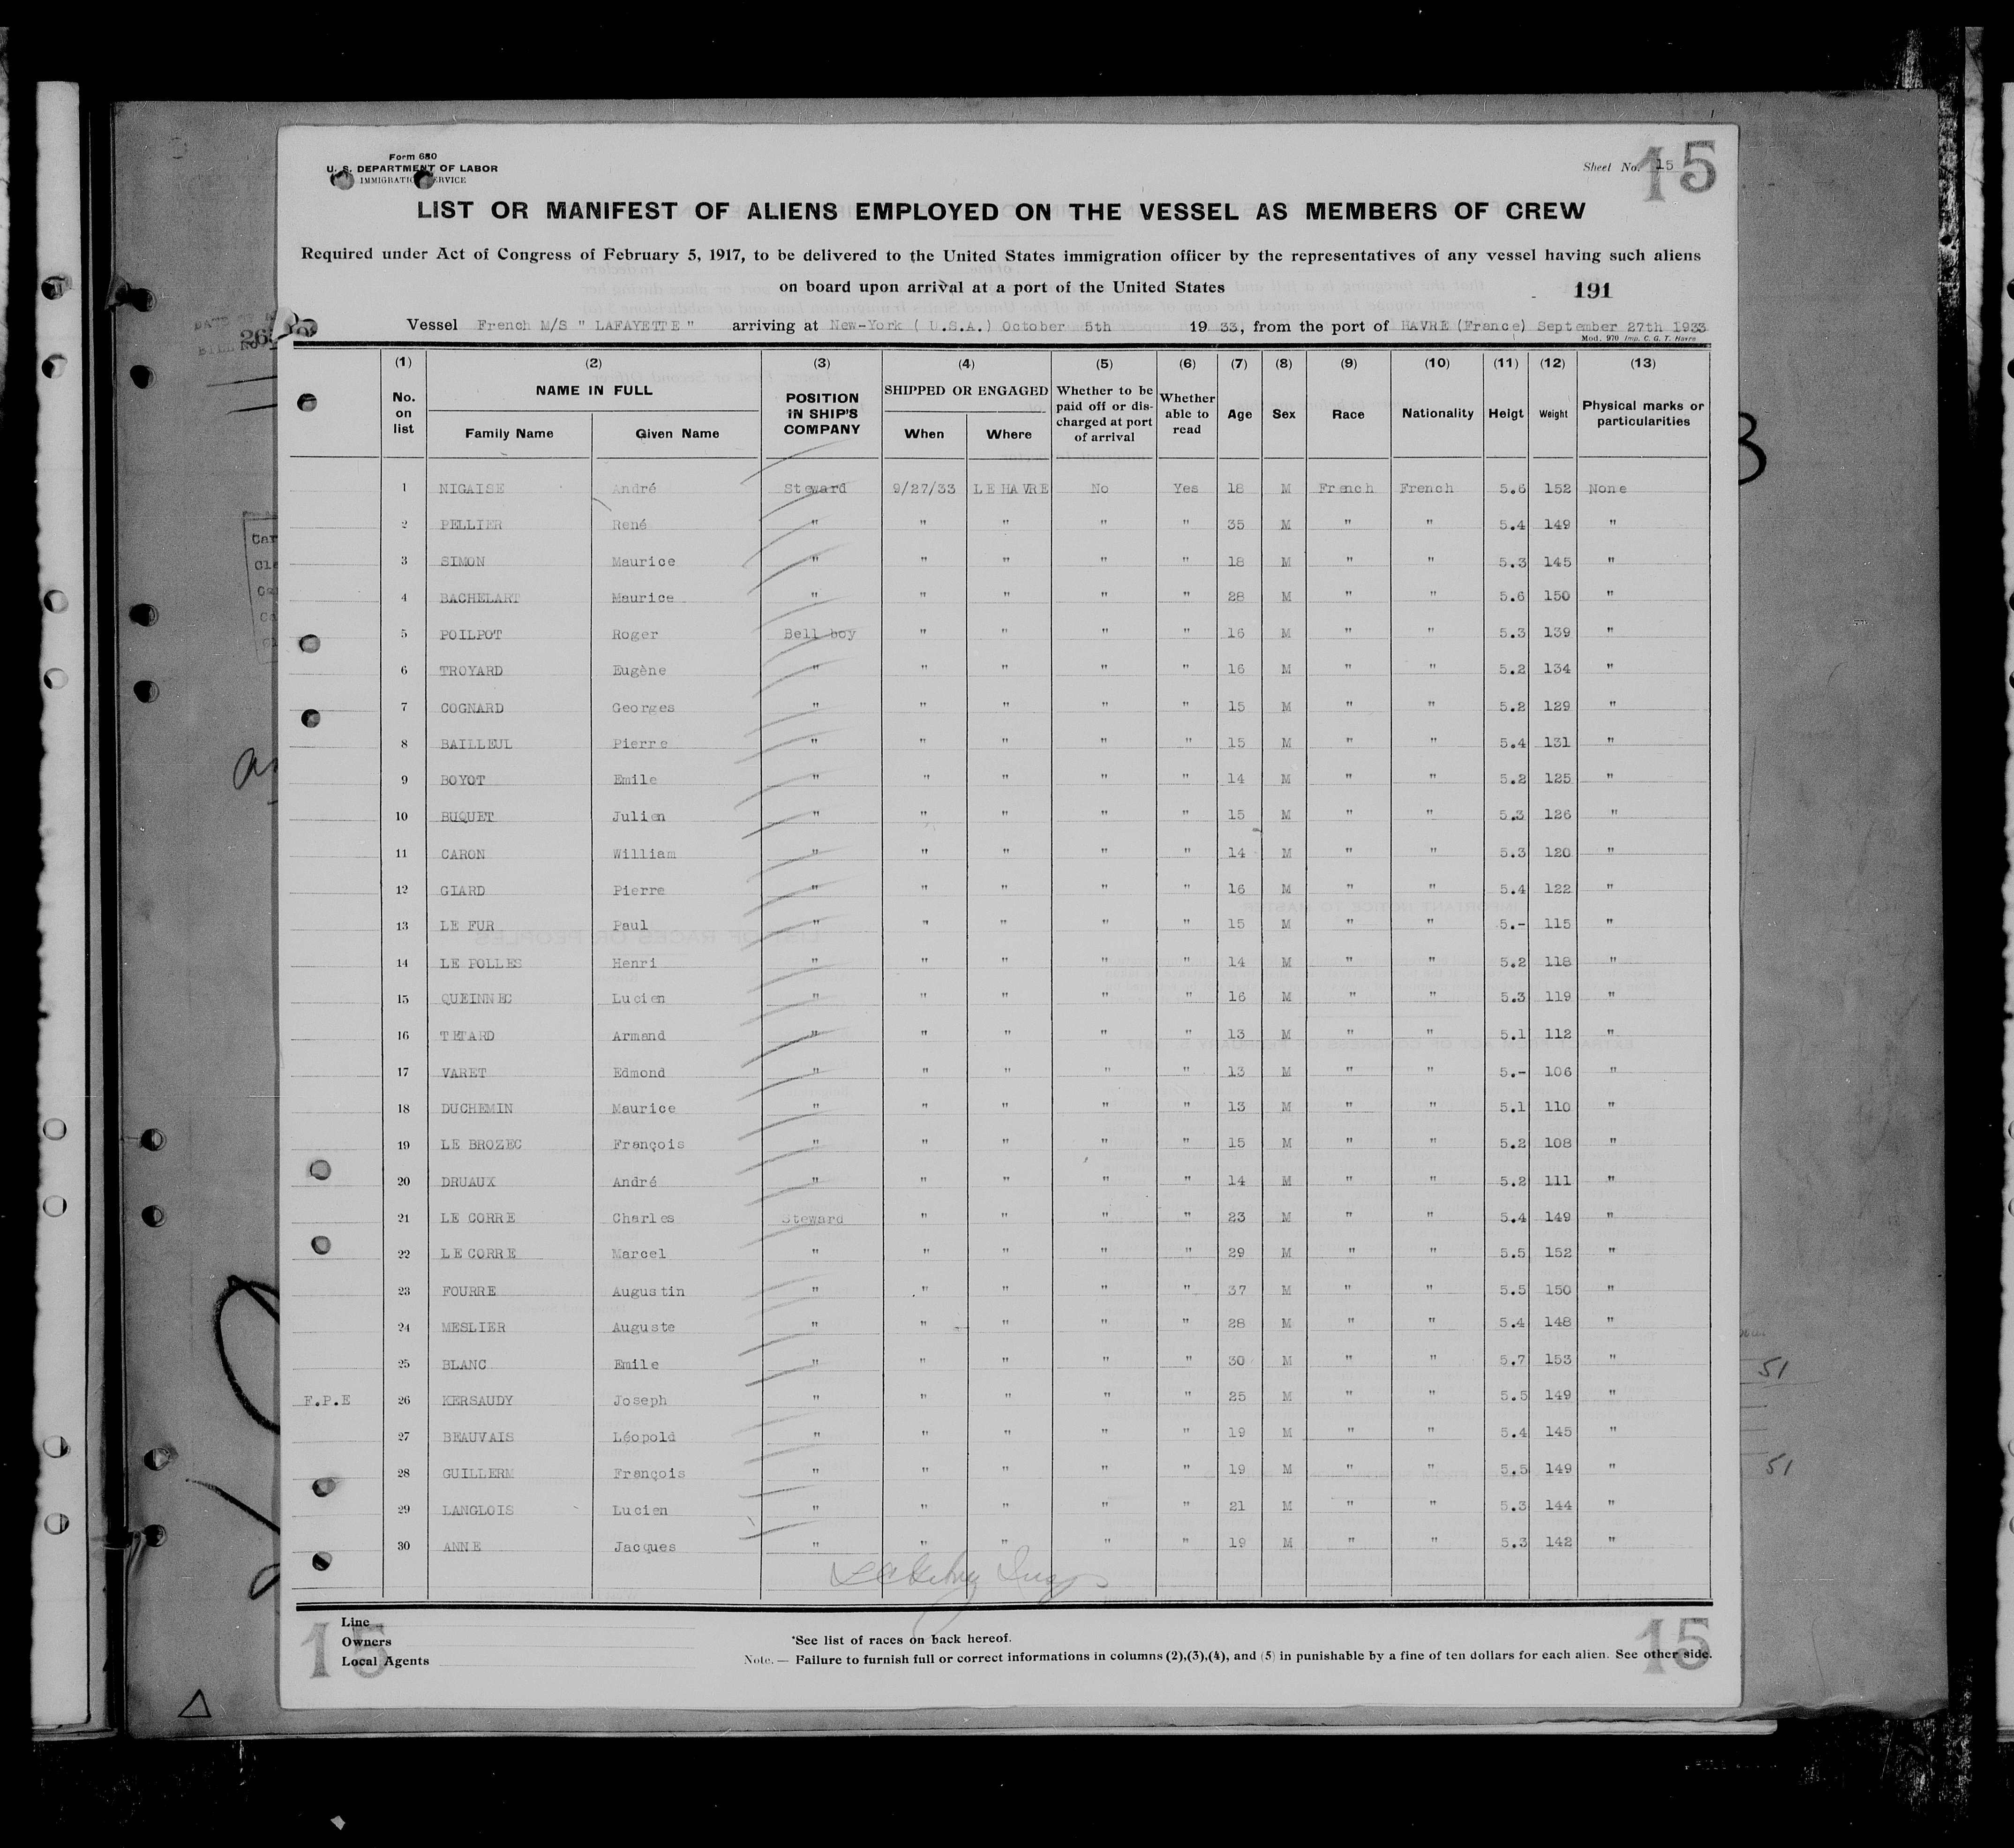 Form 680
U. S. DEPARTMENT OF LABOR
IMMIGRATION SERVICE
Sheet No. 15
15
LIST OR MANIFEST OF ALIENS EMPLOYED ON THE VESSEL AS MEMBERS OF CREW
Required under Act of Congress of February 5, 1917, to be delivered to the United States immigration officer by the representatives of any vessel having such aliens
on board upon arrival at a port of the United States
191
Vessel French M/S " LAFAYETTE " arriving at New-York ( U.S.A.) October 5th 19 33, from the port of HAVRE (France) September 27th 1933
Mod. 970 Imp. C. G. T. Havre
(1) (2) (3) (4) (5) (6) (7) (8) (9) (10) (11) (12) (13)
No. on list NAME IN FULL Family Name Given Name POSITION IN SHIP'S COMPANY SHIPPED OR ENGAGED When Where Whether to be paid off or dis-charged at port of arrival Whether able to read Age Sex Race Nationality Heigt Weight Physical marks or particularities
1 NIGAISE André Steward 9/27/33 LE HAVRE No Yes 18 M French French 5.6 152 None
2 PELLIER René " " " " " 35 M " " 5.4 149 "
3 SIMON Maurice " " " " " 18 M " " 5.3 145 "
4 BACHELART Maurice " " " " " 28 M " " 5.6 150 "
5 POILPOT Roger Bell boy " " " " 16 M " " 5.3 139 "
6 TROYARD Eugène " " " " " 16 M " " 5.2 134 "
7 COGNARD Georges " " " " " 15 M " " 5.2 129 "
8 BAILLEUL Pierre " " " " " 15 M " " 5.4 131 "
9 BOYOT Emile " " " " " 14 M " " 5.2 125 "
10 BUQUET Julien " " " " " 15 M " " 5.3 126 "
11 CARON William " " " " " 14 M " " 5.3 120 "
12 GIARD Pierre " " " " " 16 M " " 5.4 122 "
13 LE FUR Paul " " " " " 15 M " " 5.- 115 "
14 LE POLLES Henri " " " " " 14 M " " 5.2 118 "
15 QUEINNEC Lucien " " " " " 16 M " " 5.3 119 "
16 TETARD Armand " " " " " 13 M " " 5.1 112 "
17 VARET Edmond " " " " " 13 M " " 5.- 106 "
18 DUCHEMIN Maurice " " " " " 13 M " " 5.1 110 "
19 LE BROZEC François " " " " " 15 M " " 5.2 108 "
20 DRUAUX André " " " " " 14 M " " 5.2 111 "
21 LE CORRE Charles Steward " " " " 23 M " " 5.4 149 "
22 LE CORRE Marcel " " " " " 29 M " " 5.5 152 "
23 FOURRE Augustin " " " " " 37 M " " 5.5 150 "
24 MESLIER Auguste " " " " " 28 M " " 5.4 148 "
25 BLANC Emile " " " " " 30 M " " 5.7 153 "
F.P.E 26 KERSAUDY Joseph " " " " " 25 M " " 5.5 149 "
27 BEAUVAIS Léopold " " " " " 19 M " " 5.4 145 "
28 GUILLERM François " " " " " 19 M " " 5.5 149 "
29 LANGLOIS Lucien " " " " " 21 M " " 5.3 144 "
30 ANNE Jacques " " " " " 19 M " " 5.3 142 "
Line
Owners
Local Agents
15
*See list of races on back hereof.
Note.— Failure to furnish full or correct informations in columns (2),(3),(4), and (5) in punishable by a fine of ten dollars for each alien. See other side.
15
51
51